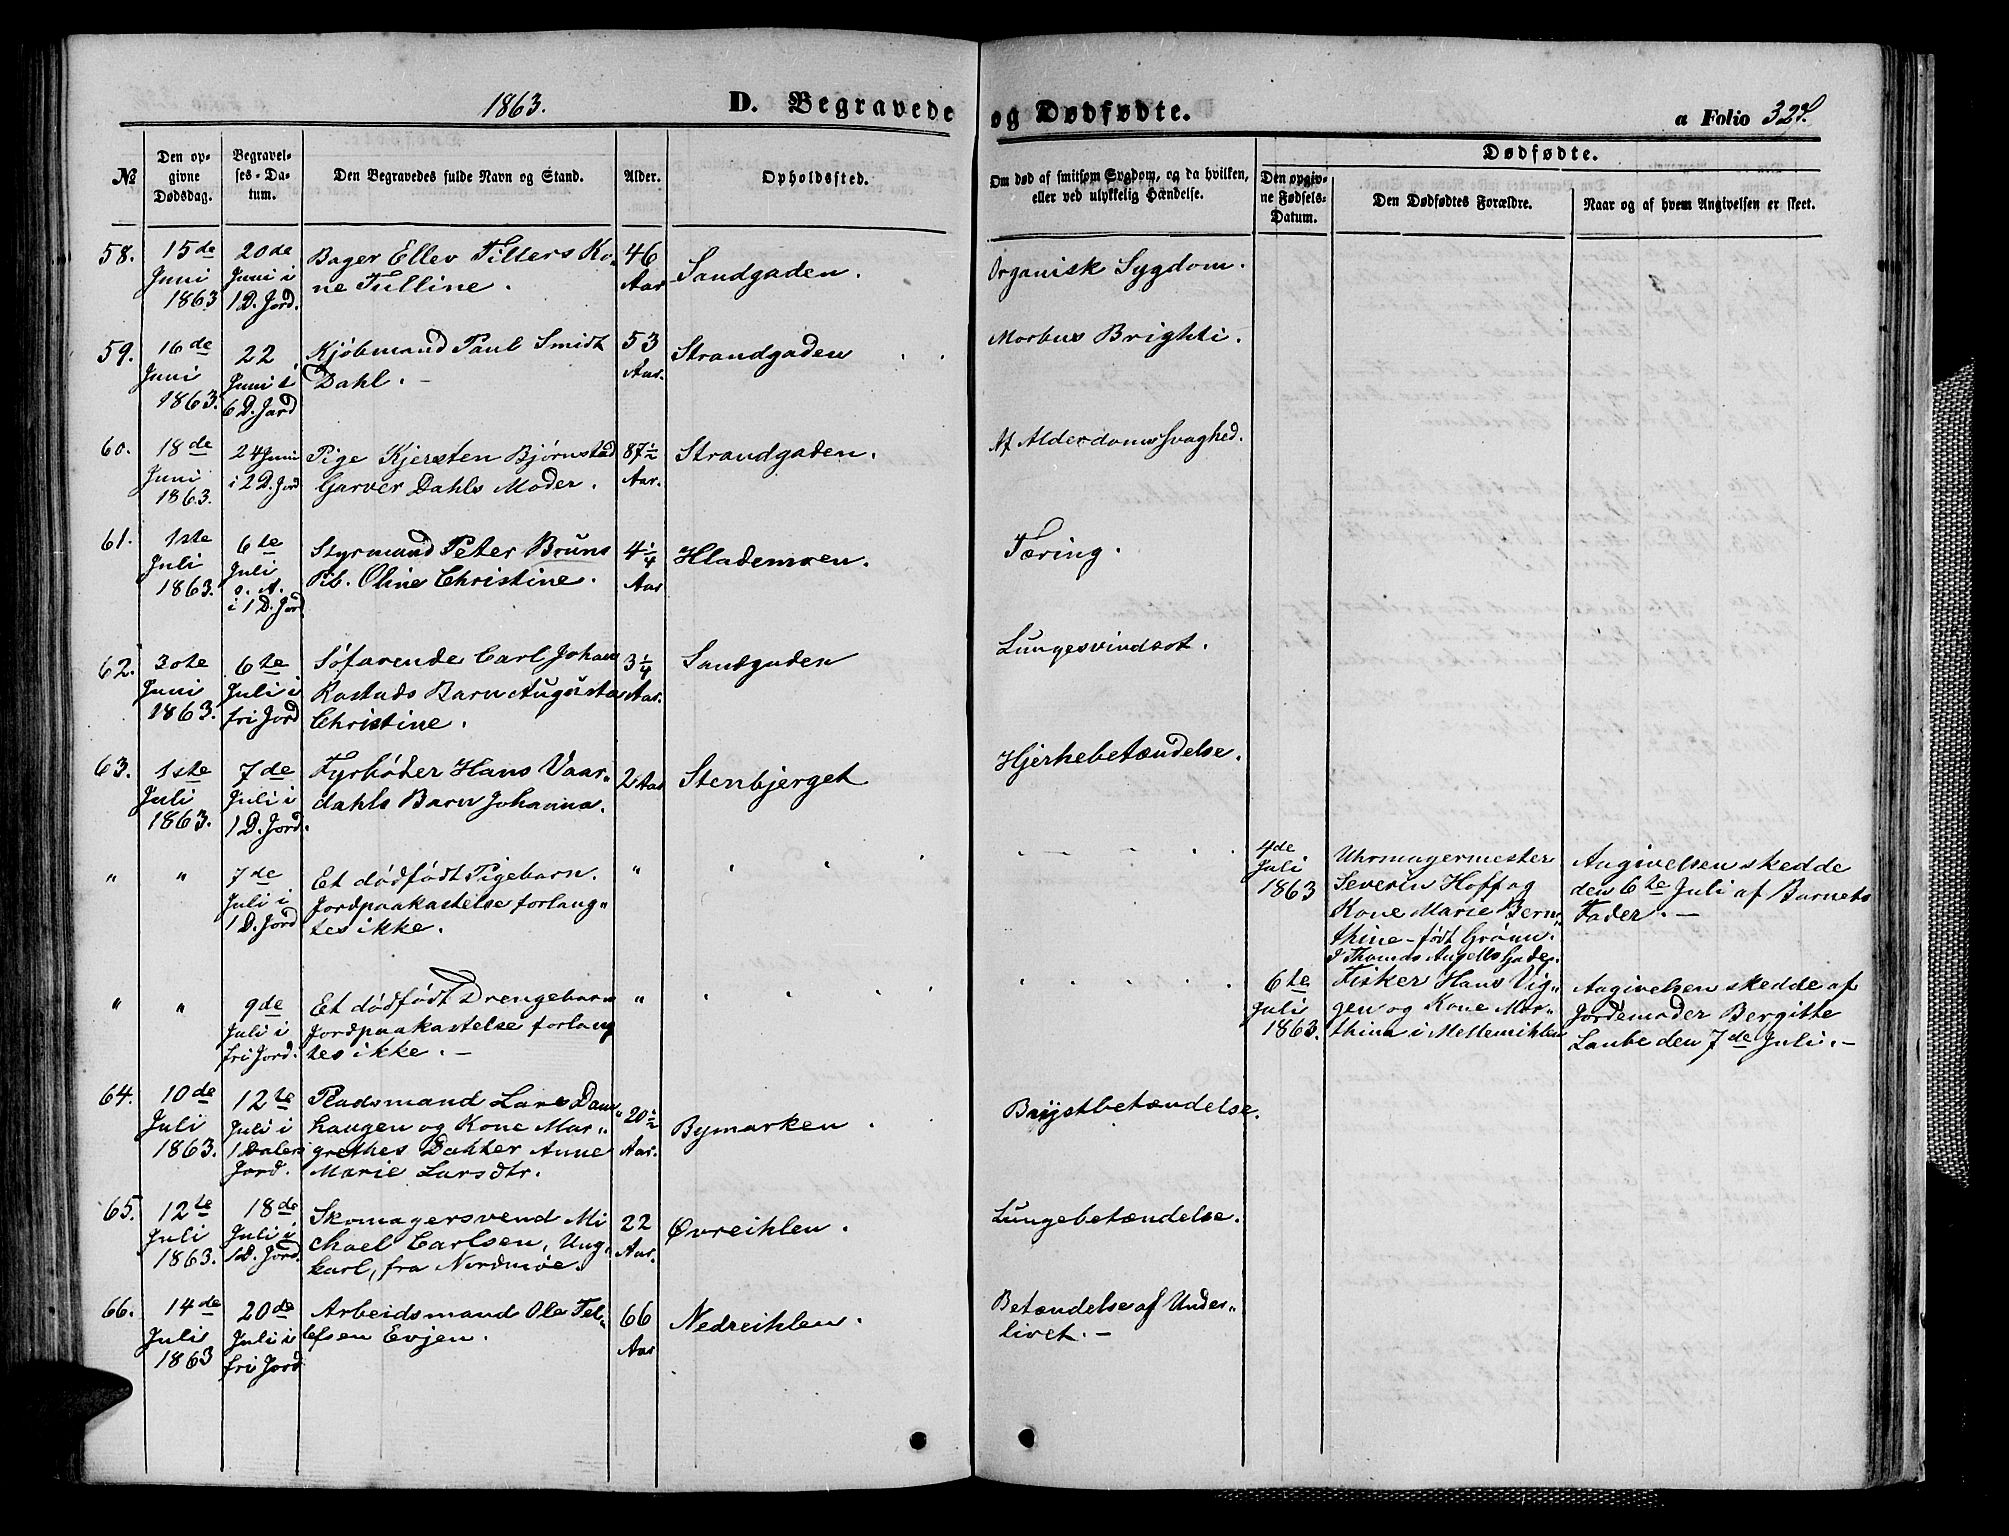 1863. D. Begravede og Dødfødte. a Folio
№ Den opgivne Dødsdag. Begravelses-Datum. Den Begravedes fulde Navn og Stand. Alder. Opholdssted. Om død af smitsom Sygdom, og da hvilken, eller ved ulykkelig Hændelse. Dødfødte.
Den opgivne Fødsels-Datum. Den Dødfødtes Forældre. Naar og af hvem Angivelsen er skeet.
58. 15de 20de Bager Ellev Tillers Ko- 46 Sandgaden. Organisk Sygdom.
Juni Juni i ne Tulline. Aar
1863 1 D. Jord.
59. 16de 22 Kjøbmand Paul Smidt 53 Strandgaden Morbus Brighti.
Juni Juni i Dahl. - Aar.
1863. 6 D. Jord
60. 18de 24 Juni Pige Kjersten Bjørnstad 87½ Strandgaden. Af Alderdomssvaghed.
Juni i 2 D. Jord Garver Dahls Moder. Aar.
1863.
61. 1ste 6te Styrmand Peter Bruns 4¼ Hlademoen. Tæring.
Juli Juli Pib. Oline Christine. Aar
1863. o. A.
i 1 D. Jord
62. 30te 6te Søfarende Carl Johan 3¼ Sandgaden Lungesvindsot.
Juni Juli i Rostads Barn Augusta Aar.
1863. fri Jord Christine.
63. 1ste 7de Fyrbøder Hans Vaar- 2 Aar Stenbjerget Hjernebetændelse.
Juli Juli i dahls Barn Johanna.
1863. 1 D. Jord.
" " 7de Et dødfødt Pigebarn. " 4de Uhrmagermester Angivelsen skedde
Juli i Jordpaakastelse forlang- Juli Severin Hoff og den 6te Juli af Barnets
1 D. Jord tes ikke. 1863 Kone Marie Bern- Fader. -
thine - født Grønn.
I Thomas Angells Gade.
" " 9de Et dødfødt Drengebarn " 6te Fisker Hans Vig- Angivelsen skedde af
Juli i Jordpaakastelse forlang Juli gen og Kone Mar- Jordemoder Bergitte
fri Jord. tes ikke. - 1863. thina i Mellemihlen Laube den 7de Juli. -
64. 10de 12te Pladsmand Lars Dam- 20½ Bymarken. Brystbetændelse.
Juli Juli i haugen og Kone Mar- Aar.
1863. 1 Dalers grethes Datter Anne
Jord. Marie Larsdtr.
65. 12te 18de Skomagersvend Mi 22 Øvreihlen. Lungebetændelse.
Juli Juli i chael Carlsen, Ung- Aar.
1863. 1 D. Jord. karl, fra Nordmøe.
66. 14de 20de Arbeidsmand Ole Tel- 66 Nedreihlen. Betændelse af Under-
Juli Juli i lefsen Evjen. Aar livet. -
1863 fri Jord